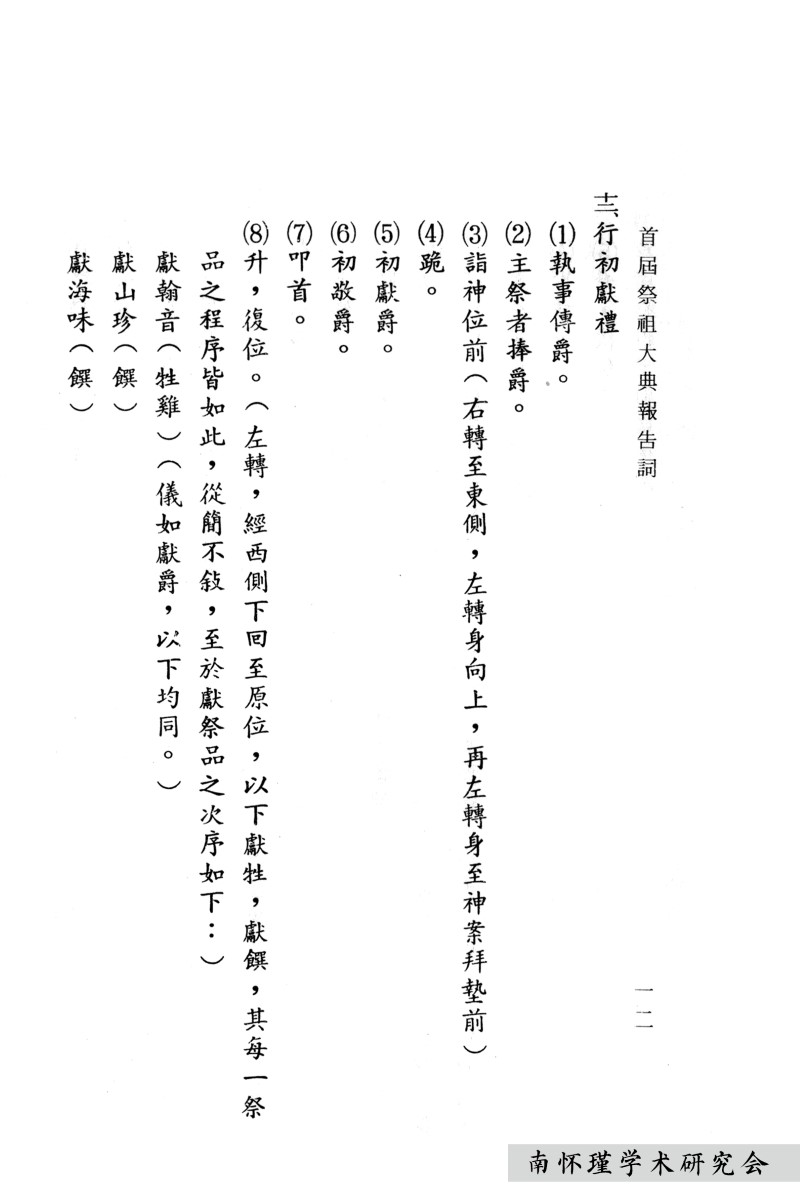 首屆祭祖大典報告詞
一二
十二、行初獻禮
⑴執事傳爵。
⑵主祭者捧爵。
⑶詣神位前（右轉至東側，左轉身向上，再左轉身至神案拜墊前）
⑷跪。
⑸初獻爵。
⑹初敬爵。
⑺叩首。
⑻升，復位。（左轉，經西側下回至原位，以下獻牲，獻饌，其每一祭
品之程序皆如此，從簡不敍，至於獻祭品之次序如下：）
獻翰音（牲雞）（儀如獻爵，以下均同。）
獻山珍（饌）
獻海味（饌）
南怀瑾学术研究会